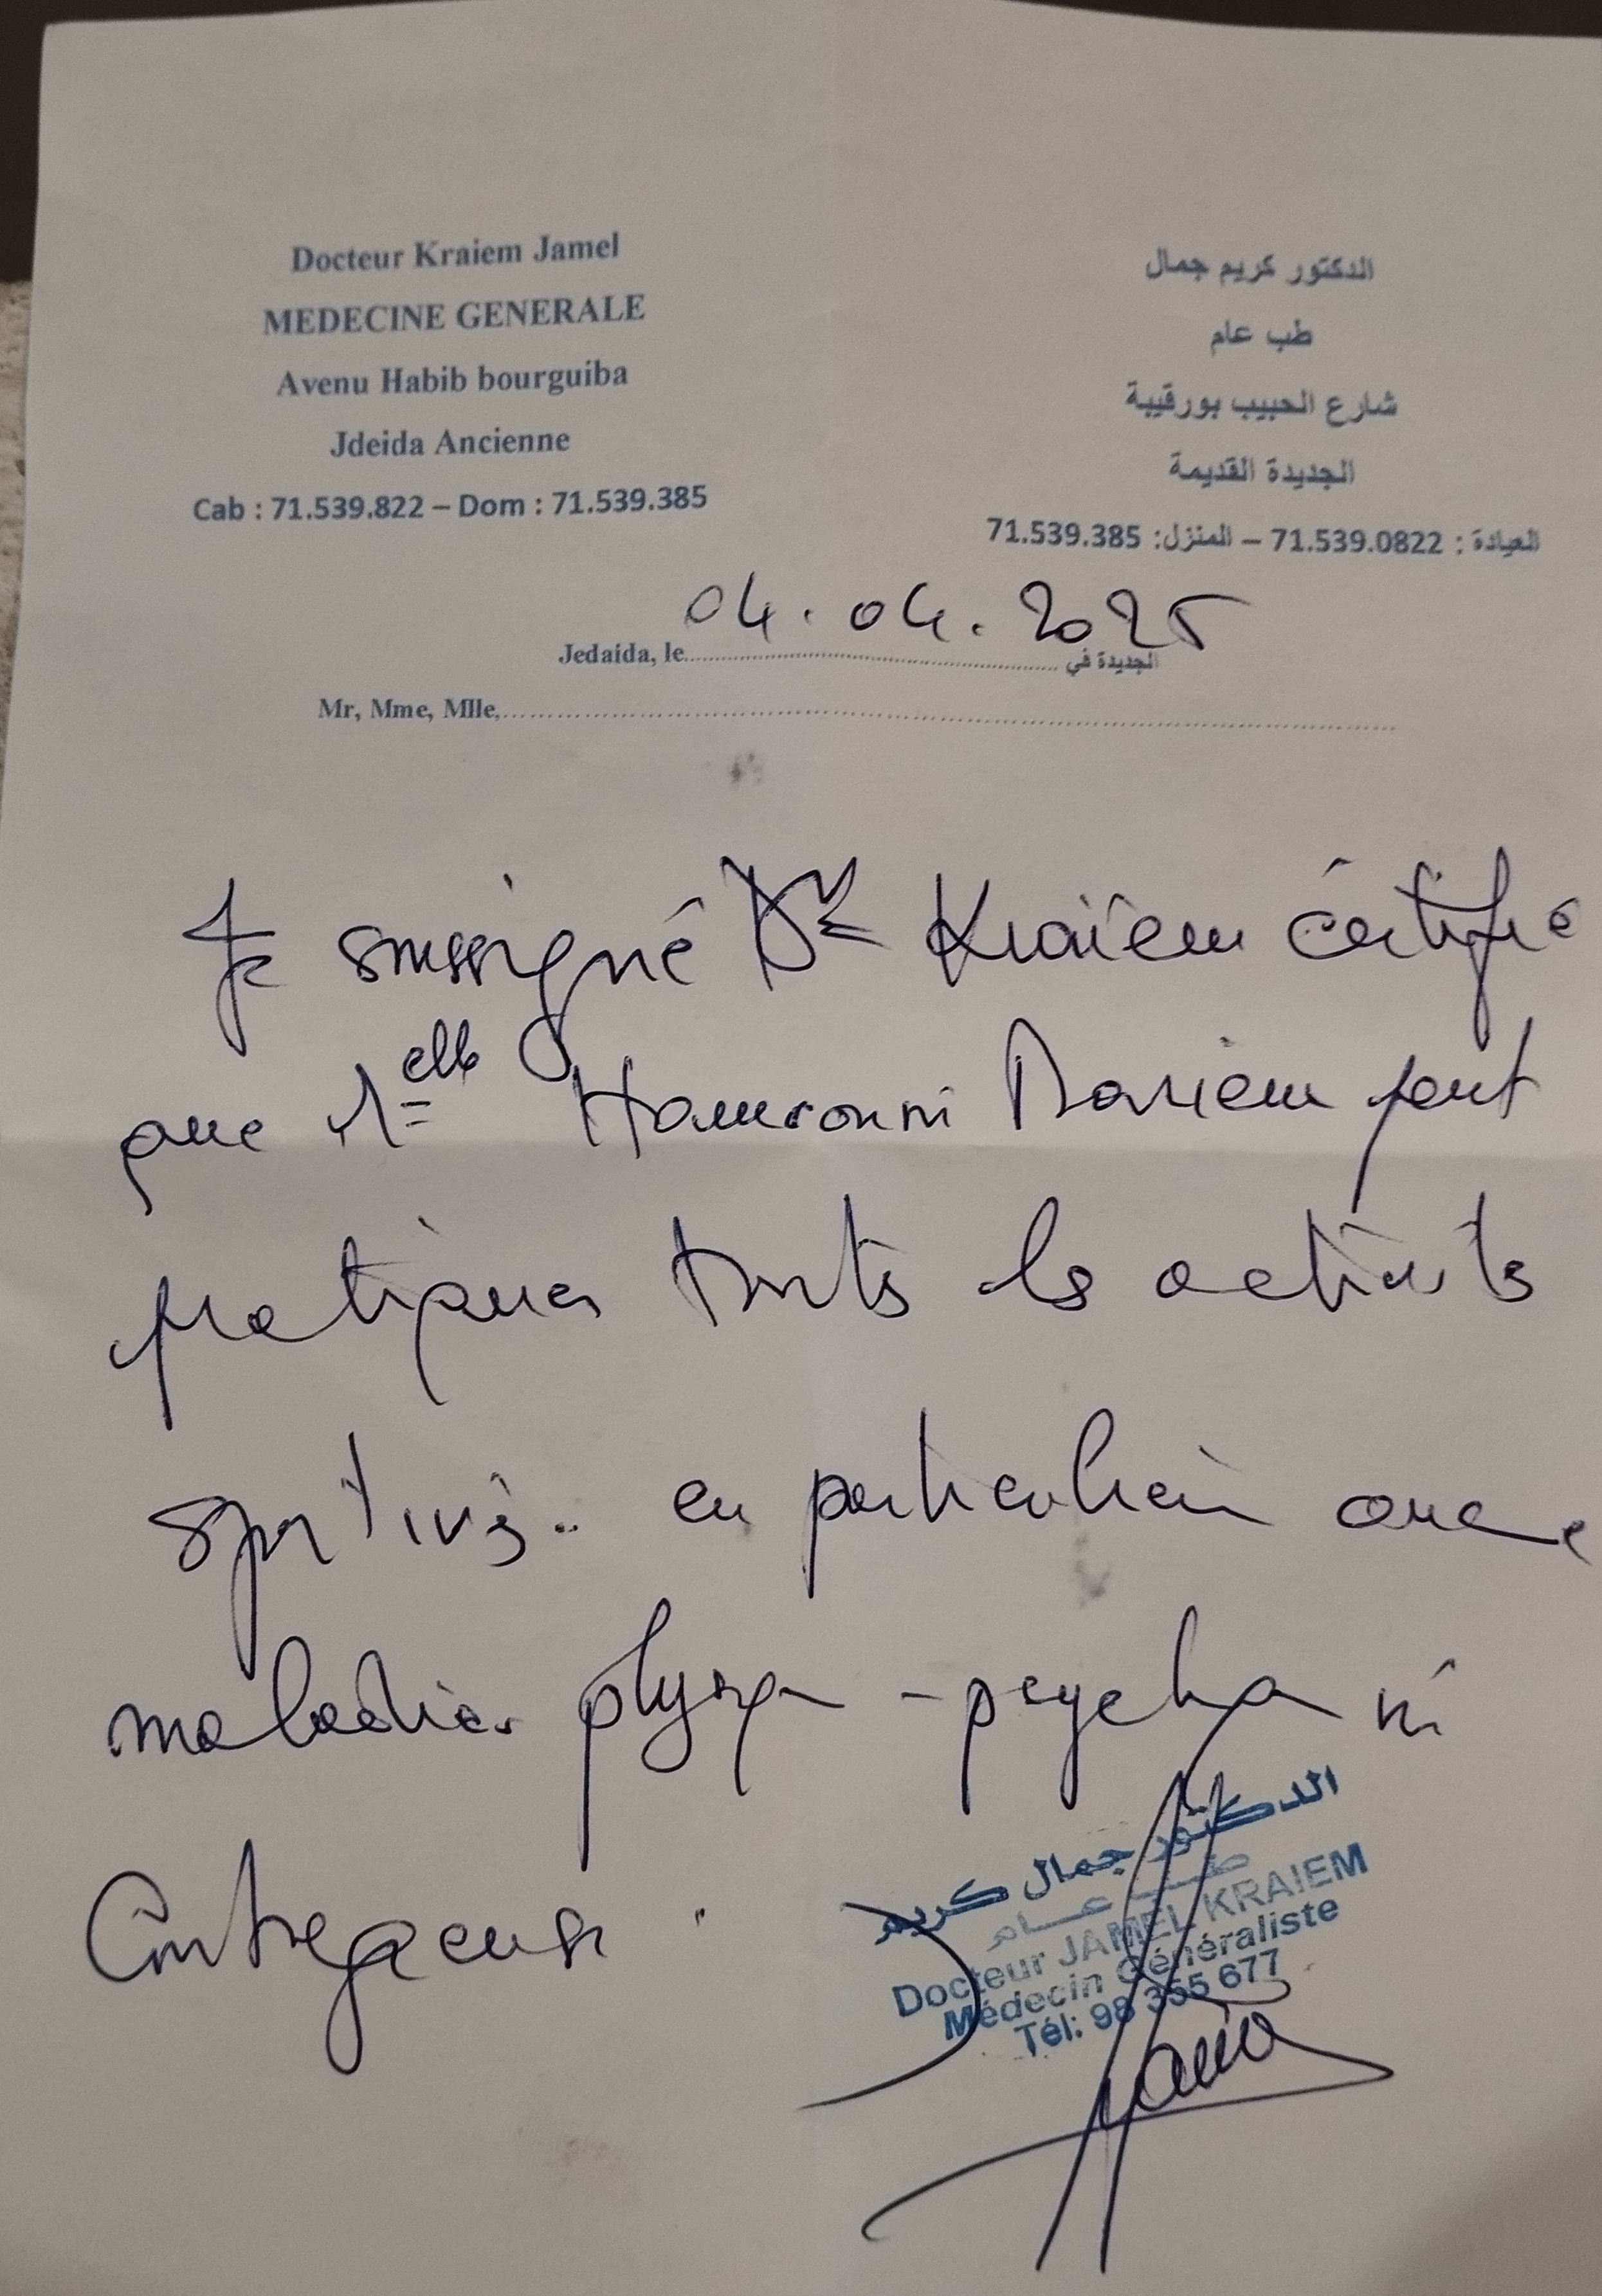 Docteur Kraiem Jamel
MEDECINE GENERALE
Avenu Habib bourguiba
Jdeida Ancienne
Cab : 71.539.822 – Dom : 71.539.385
الدكتور كريم جمال
طب عام
شارع الحبيب بورقيبة
الجديدة القديمة
العيادة : 71.539.0822 – المنزل: 71.539.385
04.04.2025
Jedaida, le الجديدة في
Mr, Mme, Mlle,
Je soussigné Dr Kraiem certifie
que Melle Hamrouni Mariem peut
pratiquer touts les activités
sportives.. en particulier
maladies physiq - psycha ni
Contagieuse.
الدكتور جمال كريم
طب عام
Docteur JAMEL KRAIEM
Médecin Généraliste
Tél: 98 355 677